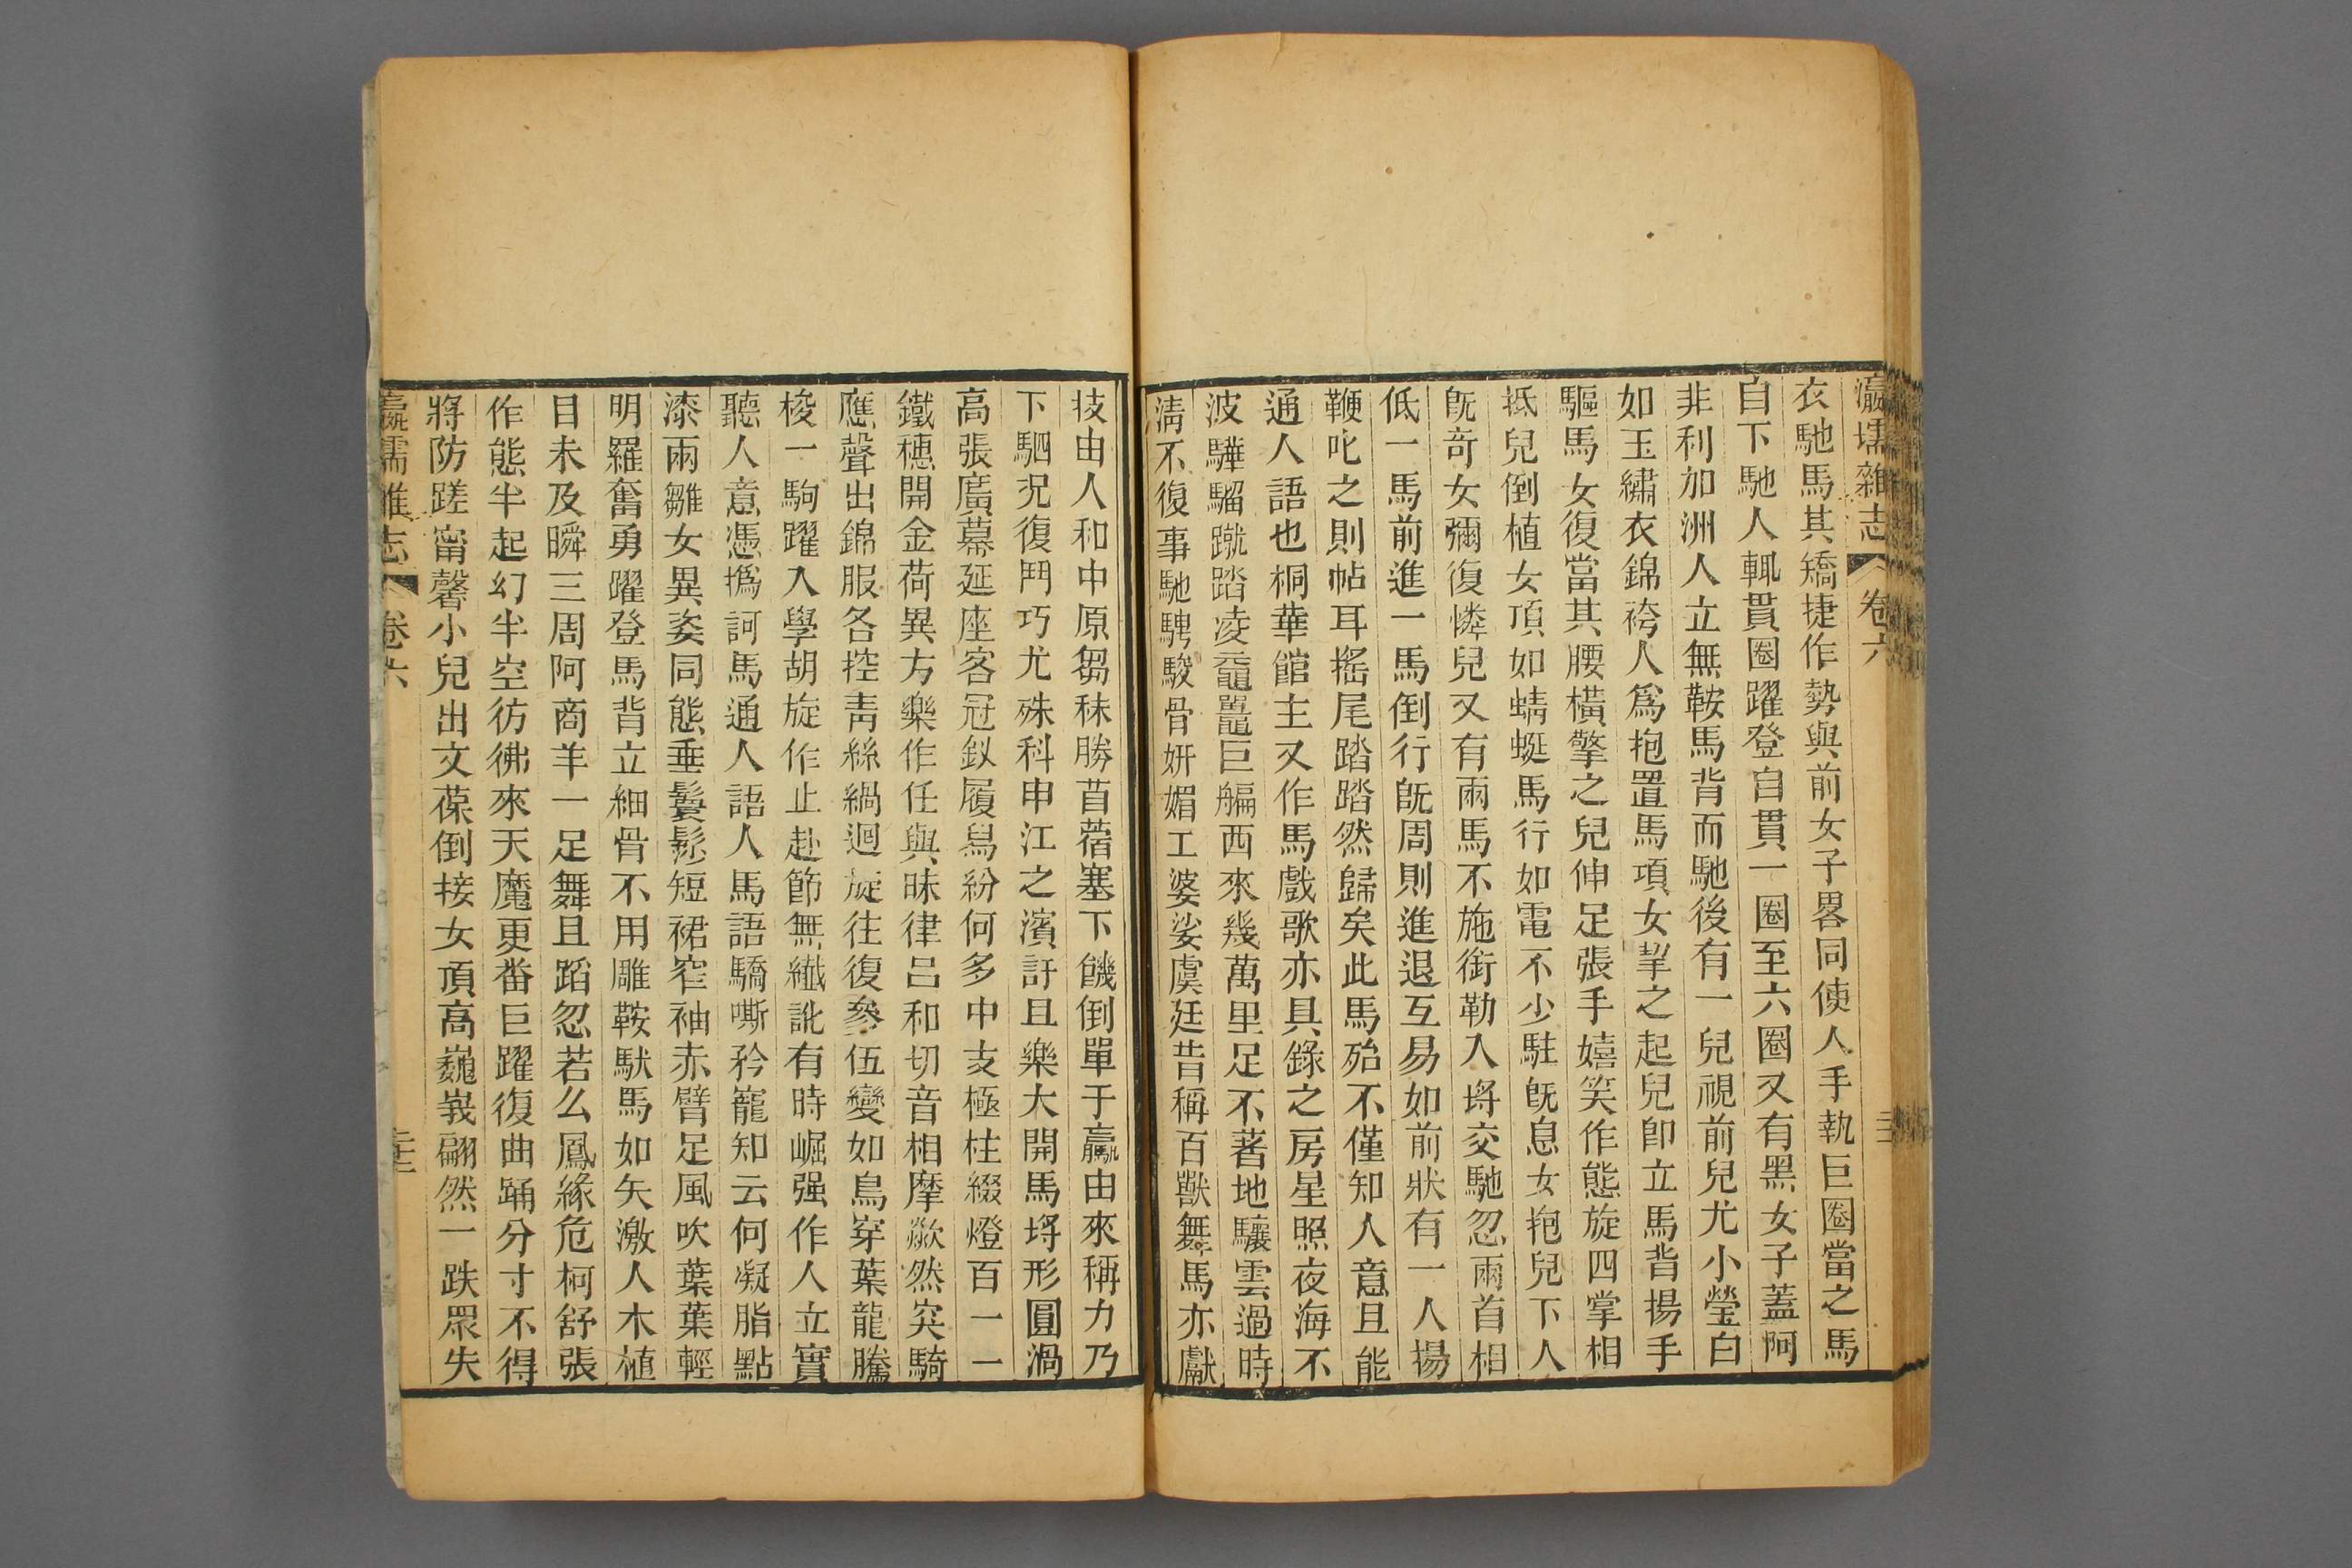 瀛壖雜志 卷六
衣馳馬其矯捷作勢與前女子畧同使人手執巨圈當之馬
自下馳人輒貫圈躍登自貫一圈至六圈又有黑女子蓋阿
非利加洲人立無鞍馬背而馳後有一兒視前兒尤小瑩白
如玉繡衣錦袴人爲抱置馬項女挈之起兒卽立馬背揚手
驅馬女復當其腰橫擎之兒伸足張手嬉笑作態旋四掌相
抵兒倒植女頂如蜻蜓馬行如電不少駐旣息女抱兒下人
旣奇女彌復憐兒又有兩馬不施銜勒入埒交馳忽兩首相
低一馬前進一馬倒行旣周則進退互易如前狀有一人揚
鞭叱之則帖耳搖尾踏踏然歸矣此馬殆不僅知人意且能
通人語也桐華館主又作馬戲歌亦具錄之房星照夜海不
波驊騮蹴踏凌黿鼉巨艑西來幾萬里足不著地驤雲過時
淸不復事馳騁駿骨妍媚工婆娑虞廷昔稱百獸舞馬亦獻
技由人和中原芻秣勝苜蓿塞下饑倒單于驘由來稱力乃
下駟況復鬥巧尤殊科申江之濱訏且樂大開馬埒形圓渦
高張廣幕延座客冠釵履舄紛何多中支極柱綴燈百一一
鐵穗開金荷異方樂作任與昧律呂和切音相摩歘然突騎
應聲出錦服各控靑絲緺迴旋往復參伍變如鳥穿葉龍騰
梭一駒躍入學胡旋作止赴節無纎訛有時崛强作人立實
聽人意憑撝訶馬通人語人馬語驕嘶矜寵知云何凝脂點
漆兩雛女異姿同態垂鬟髿短裙窄袖赤臂足風吹葉葉輕
明羅奮勇躍登馬背立細骨不用雕鞍馱馬如矢激人木植
目未及瞬三周阿商羊一足舞且蹈忽若么鳳緣危柯舒張
作態半起幻半空彷彿來天魔更番巨躍復曲踊分寸不得
將防蹉甯馨小兒出文葆倒接女頂高巍峩翩然一跌眾失
瀛壖雜志 卷六